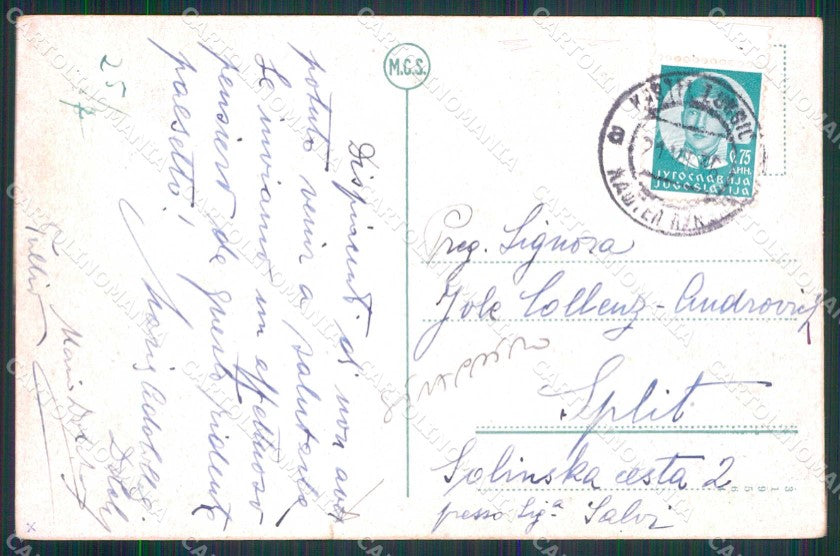 25/7
Dispiacenti di non aver
potuto venir a salutarla
Le inviamo un affettuoso
pensiero da questo ridente
paesetto!
Tullio
M.G.S.
0.75
ДИН.
ЈУГОСЛАВИЈА
JUGOSLAVIJA
Preg. Signora
Jole Collenz-Androvich
Split
Solinska cesta 2
presso Sig.a Salvi